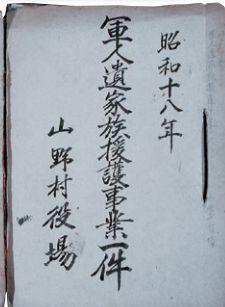 昭和十八年
軍人遺家族援護事業一件
山野村役場